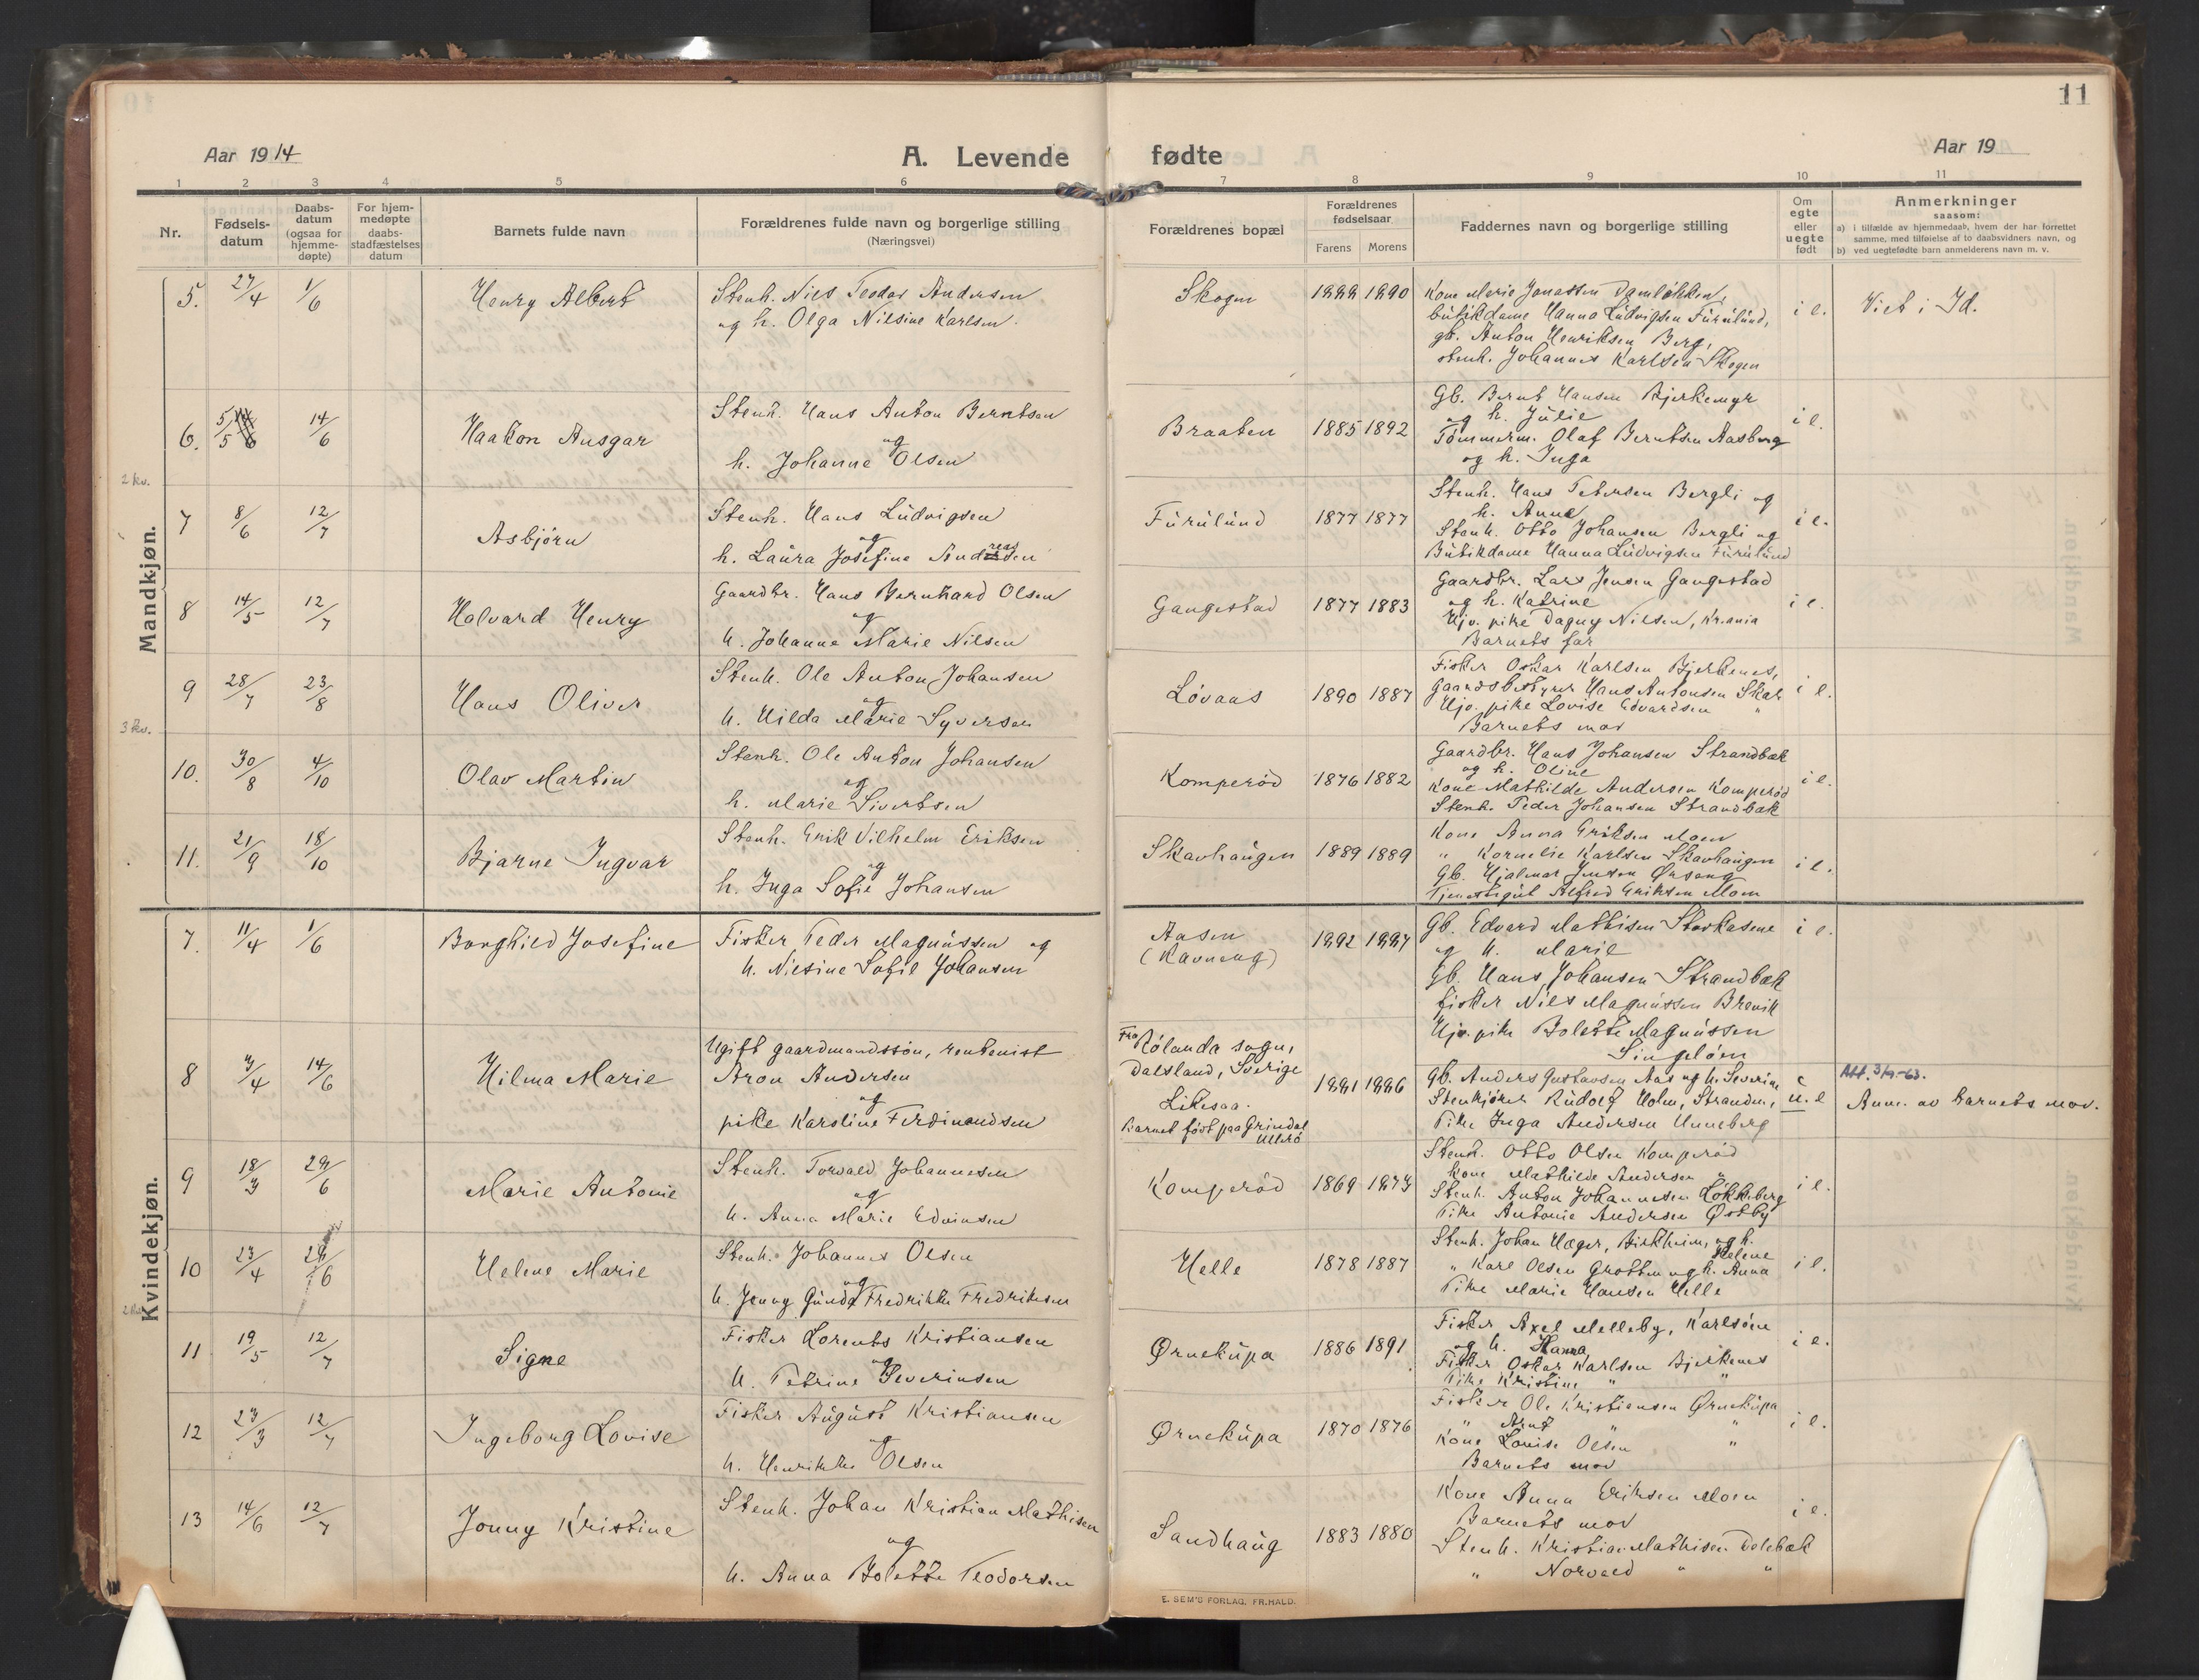 11
Aar 1914
A. Levende fødte
Aar 19
1 2 3 4 5 6 7 8 9 10 11
Nr.
Fødsels-datum
Daabs-datum (ogsaa for hjemme-døpte)
For hjem-medøpte daabs-stadfæstelses datum
Barnets fulde navn
Forældrenes fulde navn og borgerlige stilling
(Næringsvei)
Forældrenes bopæl
Forældrenes fødselsaar
Farens Morens
Faddernes navn og borgerlige stilling
Om egte eller uegte født
Anmerkninger
saasom:
a) i tilfælde av hjemmedaab, hvem der har forrettet samme, med tilføielse af to daabsvidners navn, og
b) ved uegtefødte barn anmelderens navn m. v.
Mandkjøn.
5. 27/4 1/6 Henry Albert
Stenh. Nils Teodor Andersen
og h. Olga Nilsine Karlsen.
Skogen 1888 1890
Kone Marie Jonassen Damløkken,
butikdame Hanna Ludvigsen Furulund,
gb. Anton Henriksen Berg,
stenh. Johannes Karlsen Skogen
i e.
Viet i Id.
6. 5/5 14/6 Haakon Ansgar
Stenh. Hans Anton Berntsen
og
h. Johanne Olsen
Braaten 1885 1892
Gb. Bernt Hansen Bjerkemyr
og h. Julie
Tømmerm. Olaf Berntsen Aasberg
og h. Inga
i e.
2 kv.
7 8/6 12/7 Asbjørn
Stenh. Hans Ludvigsen
og
h. Laura Josefine Andreassen
Furulund 1877 1877
Stenh. Hans Petersen Bergli og
h. Anna
Stenh. Otto Johansen Bergli og
Butikdame Hanna Ludvigsen Furulund
i e.
8 14/5 12/7 Halvard Henry
Gaardbr. Hans Bernhard Olsen
og
h. Johanne Marie Nilsen
Gangestad 1877 1883
Gaardbr. Lars Jensen Gangestad
og h. Katrine
Hjv. pike Dagny Nilsen, Kr.ania
Barnets far
i e.
9 28/7 23/8 Hans Oliver
Stenh. Ole Anton Johansen
og
h. Hilda Marie Syversen
Løvaas 1890 1887
Fisker Oskar Karlsen Bjerkenes,
Gaardsbestyrer Hans Antonsen Skar
Hjv. pike Lovise Edvardsen "
Barnets mor
i e.
3 kv.
10. 30/8 4/10 Olav Martin
Stenh. Ole Anton Johansen
og
h. Marie Sivertsen
Komperød 1876 1882
Gaardbr. Hans Johansen Strandbæk
og h. Oline
Kone Mathilde Andersen Komperød
Stenh. Peder Johansen Strandbæk
i e.
11. 21/9 18/10 Bjarne Ingvar
Stenh. Erik Vilhelm Eriksen
og
h. Inga Sofie Johansen
Skavhaugen 1889 1889
Kone Anna Eriksen Moen
" Kornelie Karlsen Skavhaugen
Gb. Hjalmar Jensen Ørseng
Tjenestegut Alfred Eriksen Moen
i e.
Kvindekjøn.
7. 11/4 1/6 Borghild Josefine
Fisker Peder Magnussen og
h. Nilsine Sofie Johansen
Aasen
(Ravneng) 1882 1887
Gb. Edvard Mathisen Storkasene
og h. Marie
Gb. Hans Johansen Strandbæk
fisker Nils Magnussen Brevik
Hjv. pike Bolette Magnussen
Singeløen
i e.
8 4/4 14/6 Hilma Marie
Ugift gaardmandssøn, rentenist
Aron Andersen
og
pike Karoline Ferdinandsen
Fra Rølanda sogn,
Dalsland, Sverige
Likesaa.
Barnet født paa Grindal
Ullerø
1881 1886
Gb. Anders Gustavsen Aas og h. Severine
Stenkjører Rudolf Holm, Stranden,
Pike Inga Andersen Unneberg
u. e
Att. 3/9-63.
Anm. av barnets mor.
9 18/3 28/6 Marie Antonie
Stenh. Torvald Johannesen
og
h. Anna Marie Edvinsen
Komperød 1869 1873
Stenh. Otto Olsen Komperød
Kone Mathilde Andersen "
Stenh. Anton Johannesen Løkkeberg
Pike Antonie Andersen Østby
i e.
10 23/4 28/6 Helene Marie
Stenh. Johannes Olsen
og
h. Jenny Gunda Fredrikke Fredriksen
Helle 1878 1887
Stenh. Johan Hager, Birkheim, og h.
Helene
" Karl Olsen Grotten og h. Anna
Pike Marie Hansen Helle
i e.
11 19/5 12/7 Signe
Fisker Lorents Kristiansen
og
h. Petrine Severinsen
Ørnekupa 1886 1891
Fisker Axel Melleby, Karlsøen
og h. Hanna
Fisker Oskar Karlsen Bjerkenes
Pike Kristine " "
i e.
12 23/3 12/7 Ingeborg Lovise
Fisker August Kristiansen
og
h. Henrikke Olsen
Ørnekupa 1870 1876
Fisker Ole Kristiansen Ørnekupa
" Arnt " "
Kone Lovise Olsen "
Barnets mor
i e.
13 14/6 12/7 Jenny Kristine
Stenh. Johan Kristian Mathisen
og
h. Anna Bolette Teodorsen
Sandhaug 1883 1880
Kone Anna Eriksen Moen
Barnets mor
Stenh. Kristian Mathisen Delebæk
" Norvald " "
i e.
E. SEM'S FORLAG, FR.HALD.